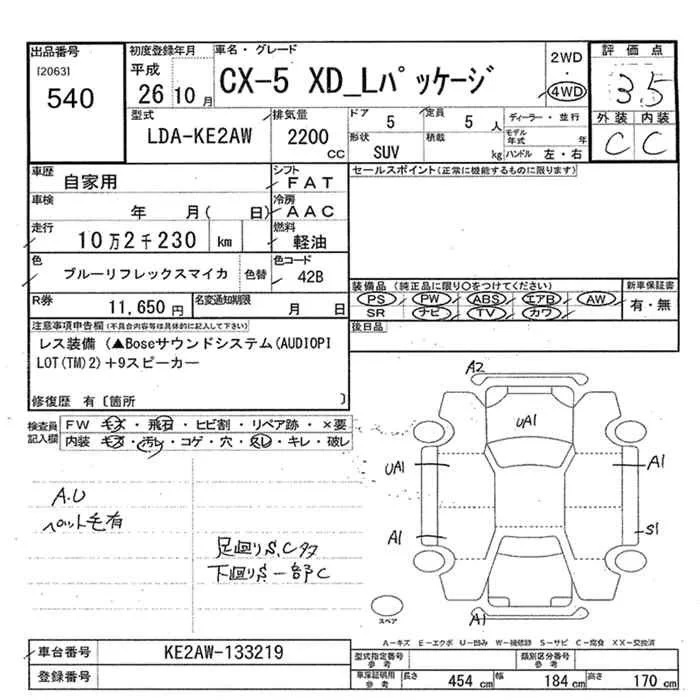 出品番号
[2063]
540
初度登録年月
平成
26 10 月
車名・グレード
CX-5 XD_Lパッケージ
2WD
・
4WD
評価点
3.5
外装 内装
C C
型式
LDA-KE2AW
排気量
2200
CC
ドア
5
定員
5 人
形状
SUV
積載
kg
ディーラー・並行
モデル年式 年
ハンドル 左・右
車歴
自家用
シフト
FAT
車検
年 月( 日)
冷房
AAC
走行
10万2千230 km
燃料
軽油
色
ブルーリフレックスマイカ
色替
色コード
42B
R券
11,650円
名変通知期限
月 日
セールスポイント(正常に機能するものに限ります)
装備品(純正品に限り〇をつけてください)
PS PW ABS エアB AW
SR ナビ TV カワ
新車保証書
有・無
後日品
注意事項申告欄(不具合内容等は具体的に記入して下さい)
レス装備(▲Boseサウンドシステム(AUDIOPI
LOT(TM)2)+9スピーカー
修復歴 有〔箇所 〕
検査員記入欄
FW キズ・飛石・ヒビ割・リペア跡・×要
内装 キズ・汚レ・コゲ・穴・スレ・キレ・破レ
A.U
ペット毛有
足廻りS.Cタタ
下廻りS一部C
A2
UA1
UA1
A1
A1
S1
A1
スペア
A－キズ E－エクボ U－凹み W－補修跡 S－サビ C－腐食 XX－交換済
車台番号
KE2AW-133219
登録番号
型式指定番号
参考
類別区分番号
参考
車庫証明用
参考
長さ 454 cm
幅 184 cm
高さ 170 cm